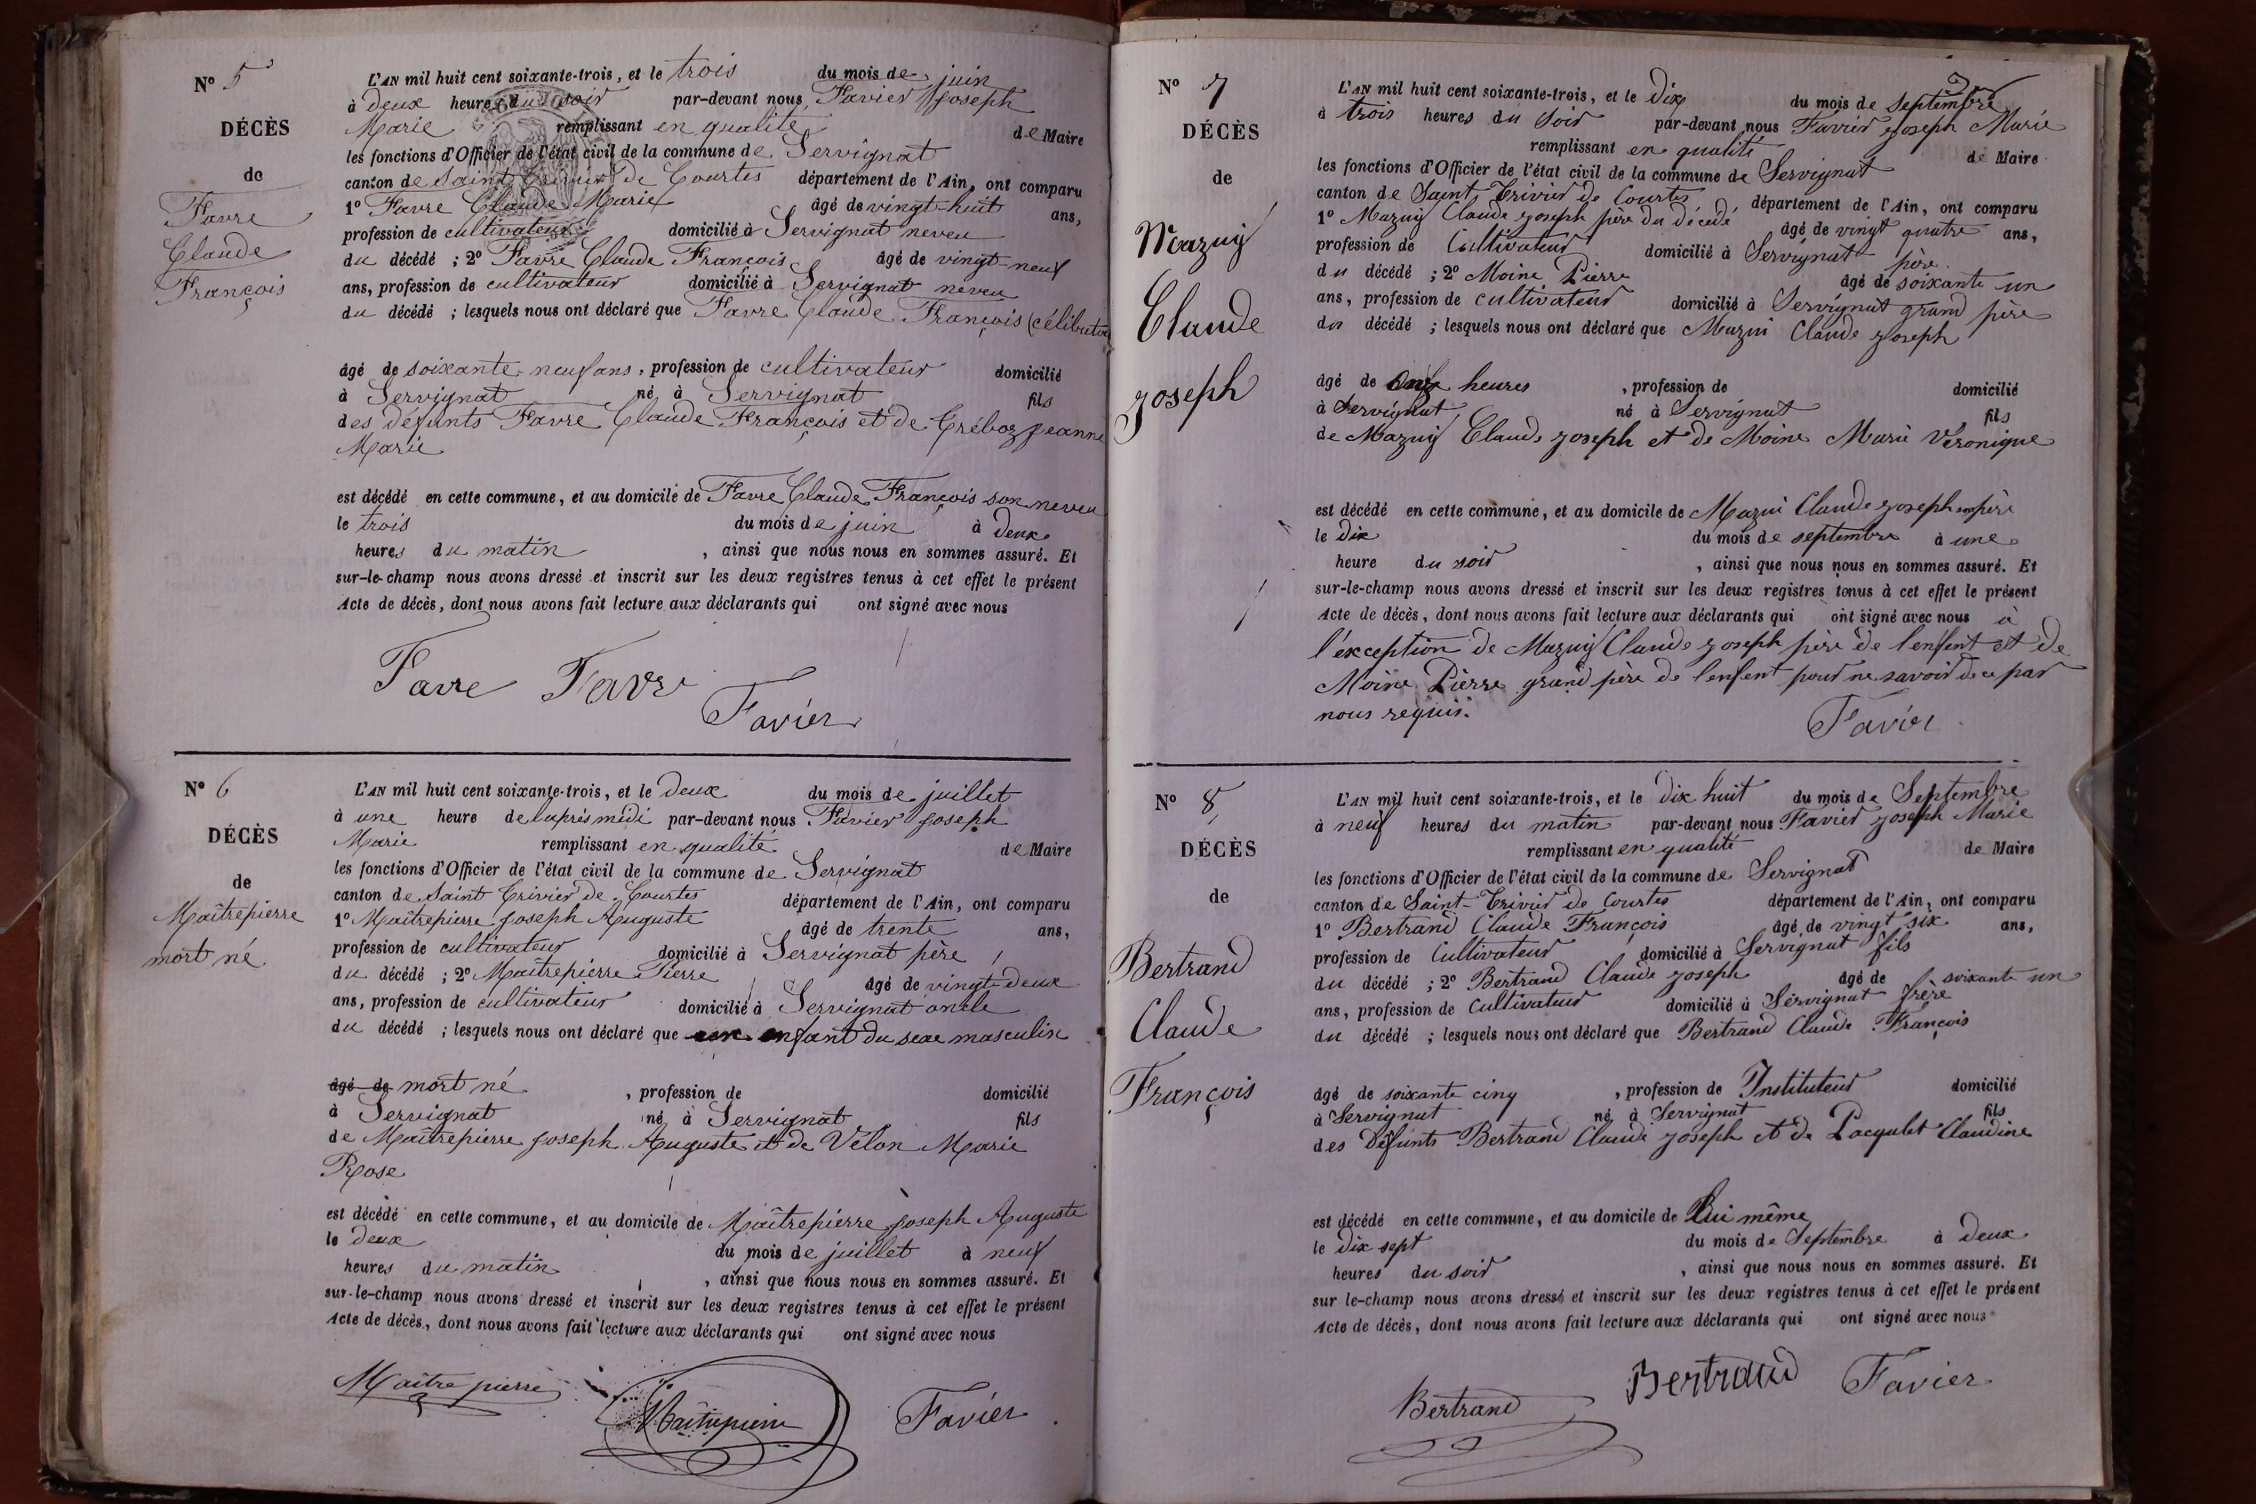 N° 5
DÉCÈS
de
Favre
Claude
François
L'AN mil huit cent soixante-trois, et le trois du mois de juin
à deux heures du soir par-devant nous Favier Joseph
Marie remplissant en qualité de Maire
les fonctions d'Officier de l'état civil de la commune de Servignat
canton de Saint Trivier de Courtes département de l'Ain, ont comparu
1° Favre Claude Marie âgé de vingt-huit ans,
profession de cultivateur domicilié à Servignat neveu
du décédé ; 2° Favre Claude François âgé de vingt-neuf
ans, profession de cultivateur domicilié à Servignat neveu
du décédé ; lesquels nous ont déclaré que Favre Claude François (célibataire
âgé de soixante-neuf ans, profession de cultivateur domicilié
à Servignat né à Servignat fils
des défunts Favre Claude François et de Tréboz Jeanne
Marie
est décédé en cette commune, et au domicile de Favre Claude François son neveu
le trois du mois de juin à deux
heures du matin, ainsi que nous nous en sommes assuré. Et
sur-le-champ nous avons dressé et inscrit sur les deux registres tenus à cet effet le présent
Acte de décès, dont nous avons fait lecture aux déclarants qui ont signé avec nous
Favre Favre
Favier
N° 6
DÉCÈS
de
Maîtrepierre
mort né
L'AN mil huit cent soixante-trois, et le deux du mois de juillet
à une heure de l'après midi par-devant nous Favier Joseph
Marie remplissant en qualité de Maire
les fonctions d'Officier de l'état civil de la commune de Servignat
canton de Saint Trivier de Courtes département de l'Ain, ont comparu
1° Maîtrepierre Joseph Auguste âgé de trente ans,
profession de cultivateur domicilié à Servignat père
du décédé ; 2° Maîtrepierre Pierre âgé de vingt-deux
ans, profession de cultivateur domicilié à Servignat oncle
du décédé ; lesquels nous ont déclaré que un enfant du sexe masculin
âgé de mort né, profession de domicilié
à Servignat né à Servignat fils
de Maîtrepierre Joseph Auguste et de Velon Marie
Rose
est décédé en cette commune, et au domicile de Maîtrepierre Joseph Auguste
le deux du mois de juillet à neuf
heures du matin, ainsi que nous nous en sommes assuré. Et
sur-le-champ nous avons dressé et inscrit sur les deux registres tenus à cet effet le présent
Acte de décès, dont nous avons fait lecture aux déclarants qui ont signé avec nous
Maitre pierre
Maitrepierre Favier
N° 7
DÉCÈS
de
Mazuy
Claude
Joseph
L'AN mil huit cent soixante-trois, et le dix du mois de septembre
à trois heures du soir par-devant nous Favier Joseph Marie
remplissant en qualité de Maire
les fonctions d'Officier de l'état civil de la commune de Servignat
canton de Saint Trivier de Courtes département de l'Ain, ont comparu
1° Mazuy Claude Joseph père du décédé âgé de vingt quatre ans,
profession de Cultivateur domicilié à Servignat père
du décédé ; 2° Moine Pierre âgé de soixante un
ans, profession de cultivateur domicilié à Servignat grand père
du décédé ; lesquels nous ont déclaré que Mazui Claude Joseph
âgé de onze heures, profession de domicilié
à Servignat né à Servignat fils
de Mazuy Claude Joseph et de Moine Marie Véronique
est décédé en cette commune, et au domicile de Mazui Claude Joseph son père
le dix du mois de septembre à une
heure du soir, ainsi que nous nous en sommes assuré. Et
sur-le-champ nous avons dressé et inscrit sur les deux registres tenus à cet effet le présent
Acte de décès, dont nous avons fait lecture aux déclarants qui ont signé avec nous à
l'exception de Mazuy Claude Joseph père de l'enfent et de
Moine Pierre grand père de l'enfent pour ne savoir de ce par
nous requis.
Favier
N° 8
DÉCÈS
de
Bertrand
Claude
François
L'AN mil huit cent soixante-trois, et le dix huit du mois de Septembre
à neuf heures du matin par-devant nous Favier Joseph Marie
remplissant en qualité de Maire
les fonctions d'Officier de l'état civil de la commune de Servignat
canton de Saint-Trivier de Courtes département de l'Ain, ont comparu
1° Bertrand Claude François âgé de vingt six ans,
profession de Cultivateur domicilié à Servignat fils
du décédé ; 2° Bertrand Claude Joseph âgé de soixante un
ans, profession de Cultivateur domicilié à Servignat frère
du décédé ; lesquels nous ont déclaré que Bertrand Claude François
âgé de soixante cinq, profession de Instituteur domicilié
à Servignat né à Servignat fils
des défunts Bertrand Claude Joseph et de Pacqulet Claudine
est décédé en cette commune, et au domicile de Lui même
le dix sept du mois de Septembre à deux
heures du soir, ainsi que nous nous en sommes assuré. Et
sur le-champ nous avons dressé et inscrit sur les deux registres tenus à cet effet le présent
Acte de décès, dont nous avons fait lecture aux déclarants qui ont signé avec nous
Bertrand Bertrand Favier